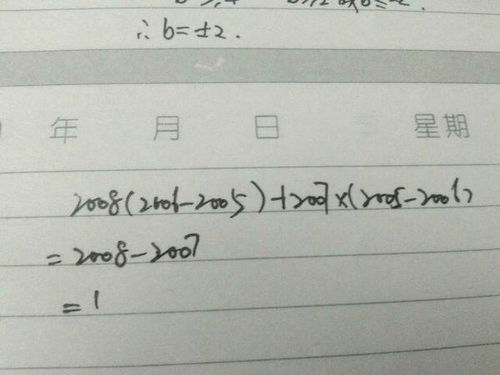 ∴ b=±2.
年 月 日 星期
2008(2006-2005)+2007×(2005-2006)
=2008-2007
=1